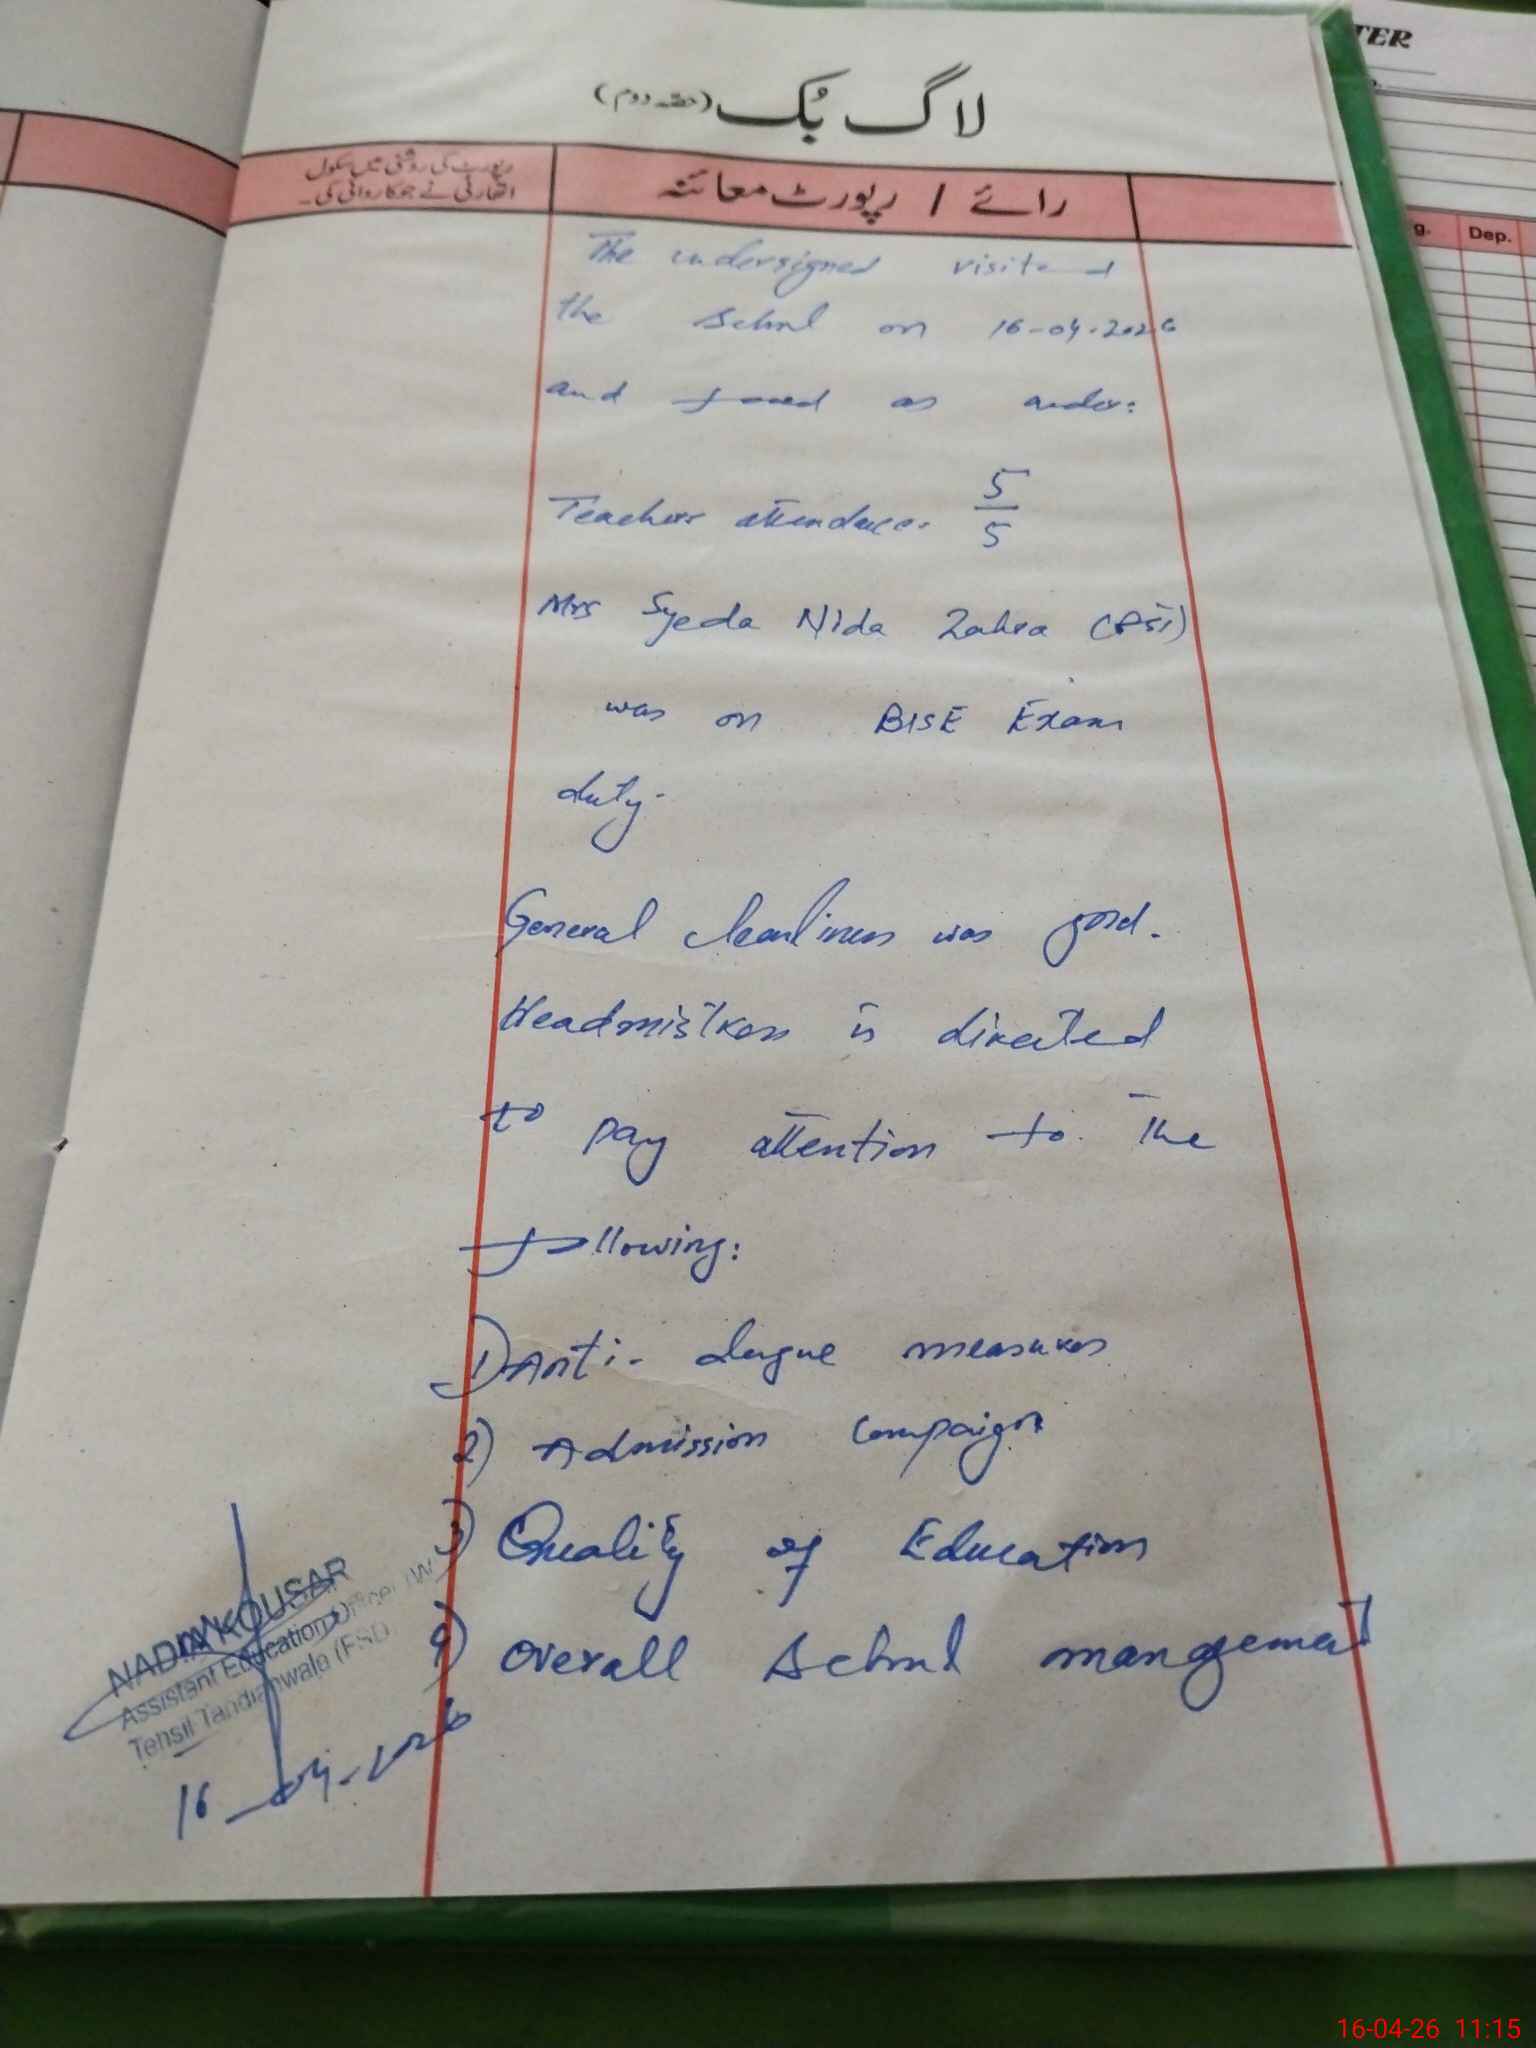 لاگ بُک (حصہ دوم)
رائے / رپورٹ معائنہ
رپورٹ کی روشنی میں سکول
اتھارٹی نے جو کاروائی کی۔
The undersigned visited
the School on 16-04-2026
and found as under:
Teachers attendace. 5/5
Mrs Syeda Nida Zahra
was on BISE Exam
duty.
General cleanliness was good.
Headmistress is directed
to pay attention to the
following:
1) Anti-dengue measures
2) Admission Campaign
3) Quality of Education
4) Overall School management
NADIA KOUSAR
Assistant Education Officer (W)
Tehsil Tandlianwala (FSD)
16-04-2026
TER
g. Dep.
16-04-26 11:15